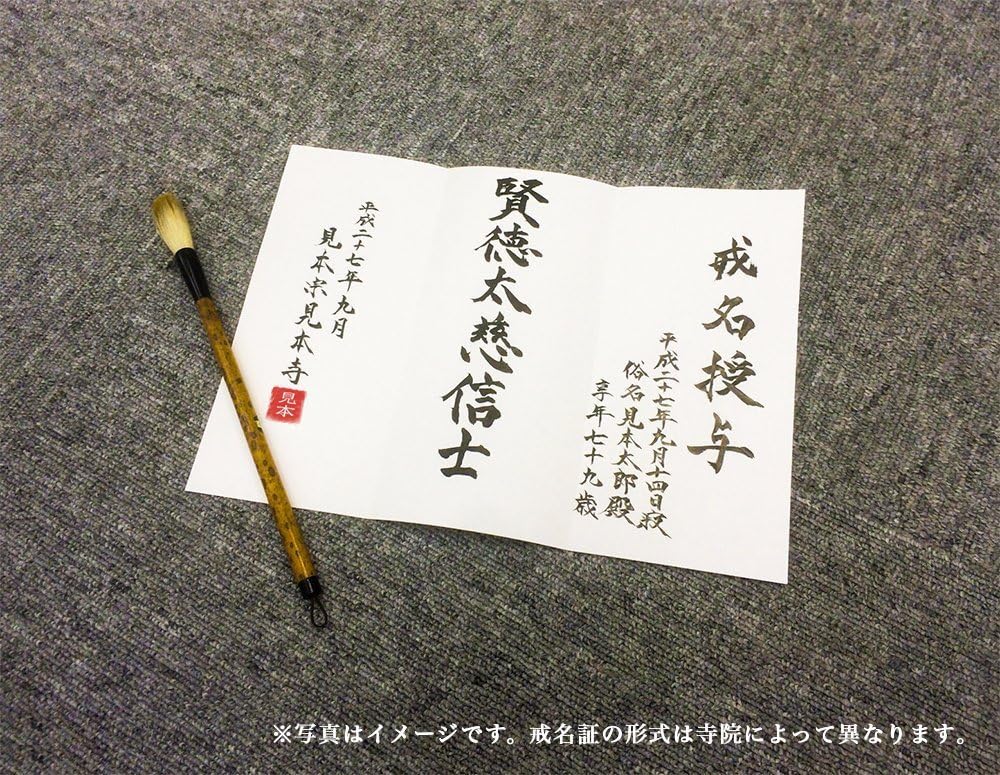 戒名授与
平成二十七年九月十四日歿
俗名見本太郎殿
享年七十九歳
賢徳太慈信士
平成二十七年九月
見本宗見本寺
見本
※写真はイメージです。戒名証の形式は寺院によって異なります。